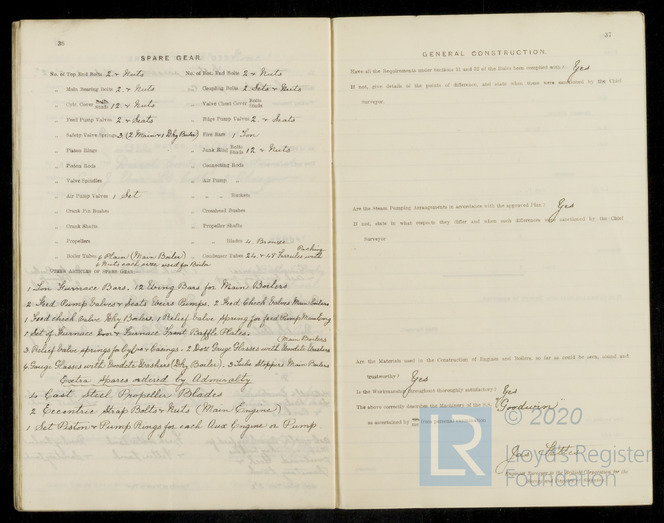 36
SPARE GEAR.
No. of Top End Bolts 2 & Nuts No. of Bot. End Bolts 2 & Nuts
„ Main Bearing Bolts 2 & Nuts „ Coupling Bolts 2 Sets & Nuts
„ Cyls. Cover Studs 12 & Nuts „ Valve Chest Cover Bolts Studs
„ Feed Pump Valves 2 & Seats „ Bilge Pump Valves 2 & Seats
„ Safety Valve Springs 3 (2 Main & 1 Dky Boiler) Fire Bars 1 Ton
„ Piston Rings „ Junk Ring Bolts Studs 12 & Nuts
„ Piston Rods „ Connecting Rods
„ Valve Spindles „ Air Pump „
„ Air Pump Valves 1 Set „ „ Buckets
„ Crank Pin Bushes „ Crosshead Bushes
„ Crank Shafts „ Propeller Shafts
„ Propellers „ „ Blades 4 Bronze
„ Boiler Tubes 6 Plain (Main Boiler) „ Condenser Tubes 24 & 48 Ferrules with Packing
6 Nuts each size used for Boiler
OTHER ARTICLES OF SPARE GEAR:
1 Ton Furnace Bars. 12 Bars for Main Boilers
2 Feed Pump Valves & Seats Weirs Pumps. 2 Feed Check Valves Main Boilers
1 Feed check Valve Dky Boilers. 1 Relief Valve spring for feed Pump
1 Set of Furnace Door & Furnace Front Baffle Plates.
3 Relief Valve springs for Cyls & Casings. 2 Doz Gauge Glasses with Woodite Washers (Main Boilers)
6 Gauge Glasses with Woodite Washers (Dky Boiler). 3 Tube Stoppers Main Boilers
Extra Spares ordered by Admiralty
4 Cast Steel Propeller Blades
2 Eccentric Strap Bolts & Nuts (Main Engine)
1 Set Piston & Pump Rings for each Aux Engine or Pump
37
GENERAL CONSTRUCTION.
Have all the Requirements under Sections 31 and 32 of the Rules been complied with? Yes
If not, give details of the points of difference, and state when these were sanctioned by the Chief
Surveyor.
Are the Steam Pumping Arrangements in accordance with the approved Plan? Yes
If not, state in what respects they differ and when such differences were sanctioned by the Chief
Surveyor
Are the Materials used in the Construction of Engines and Boilers, so far as could be seen, sound and
trustworthy? Yes
Is the Workmanship throughout thoroughly satisfactory? Yes
The above correctly describes the Machinery of the S.S. "Goodwin"
as ascertained by from personal examination
Jas
© 2020
LR
Lloyd's Register
Foundation